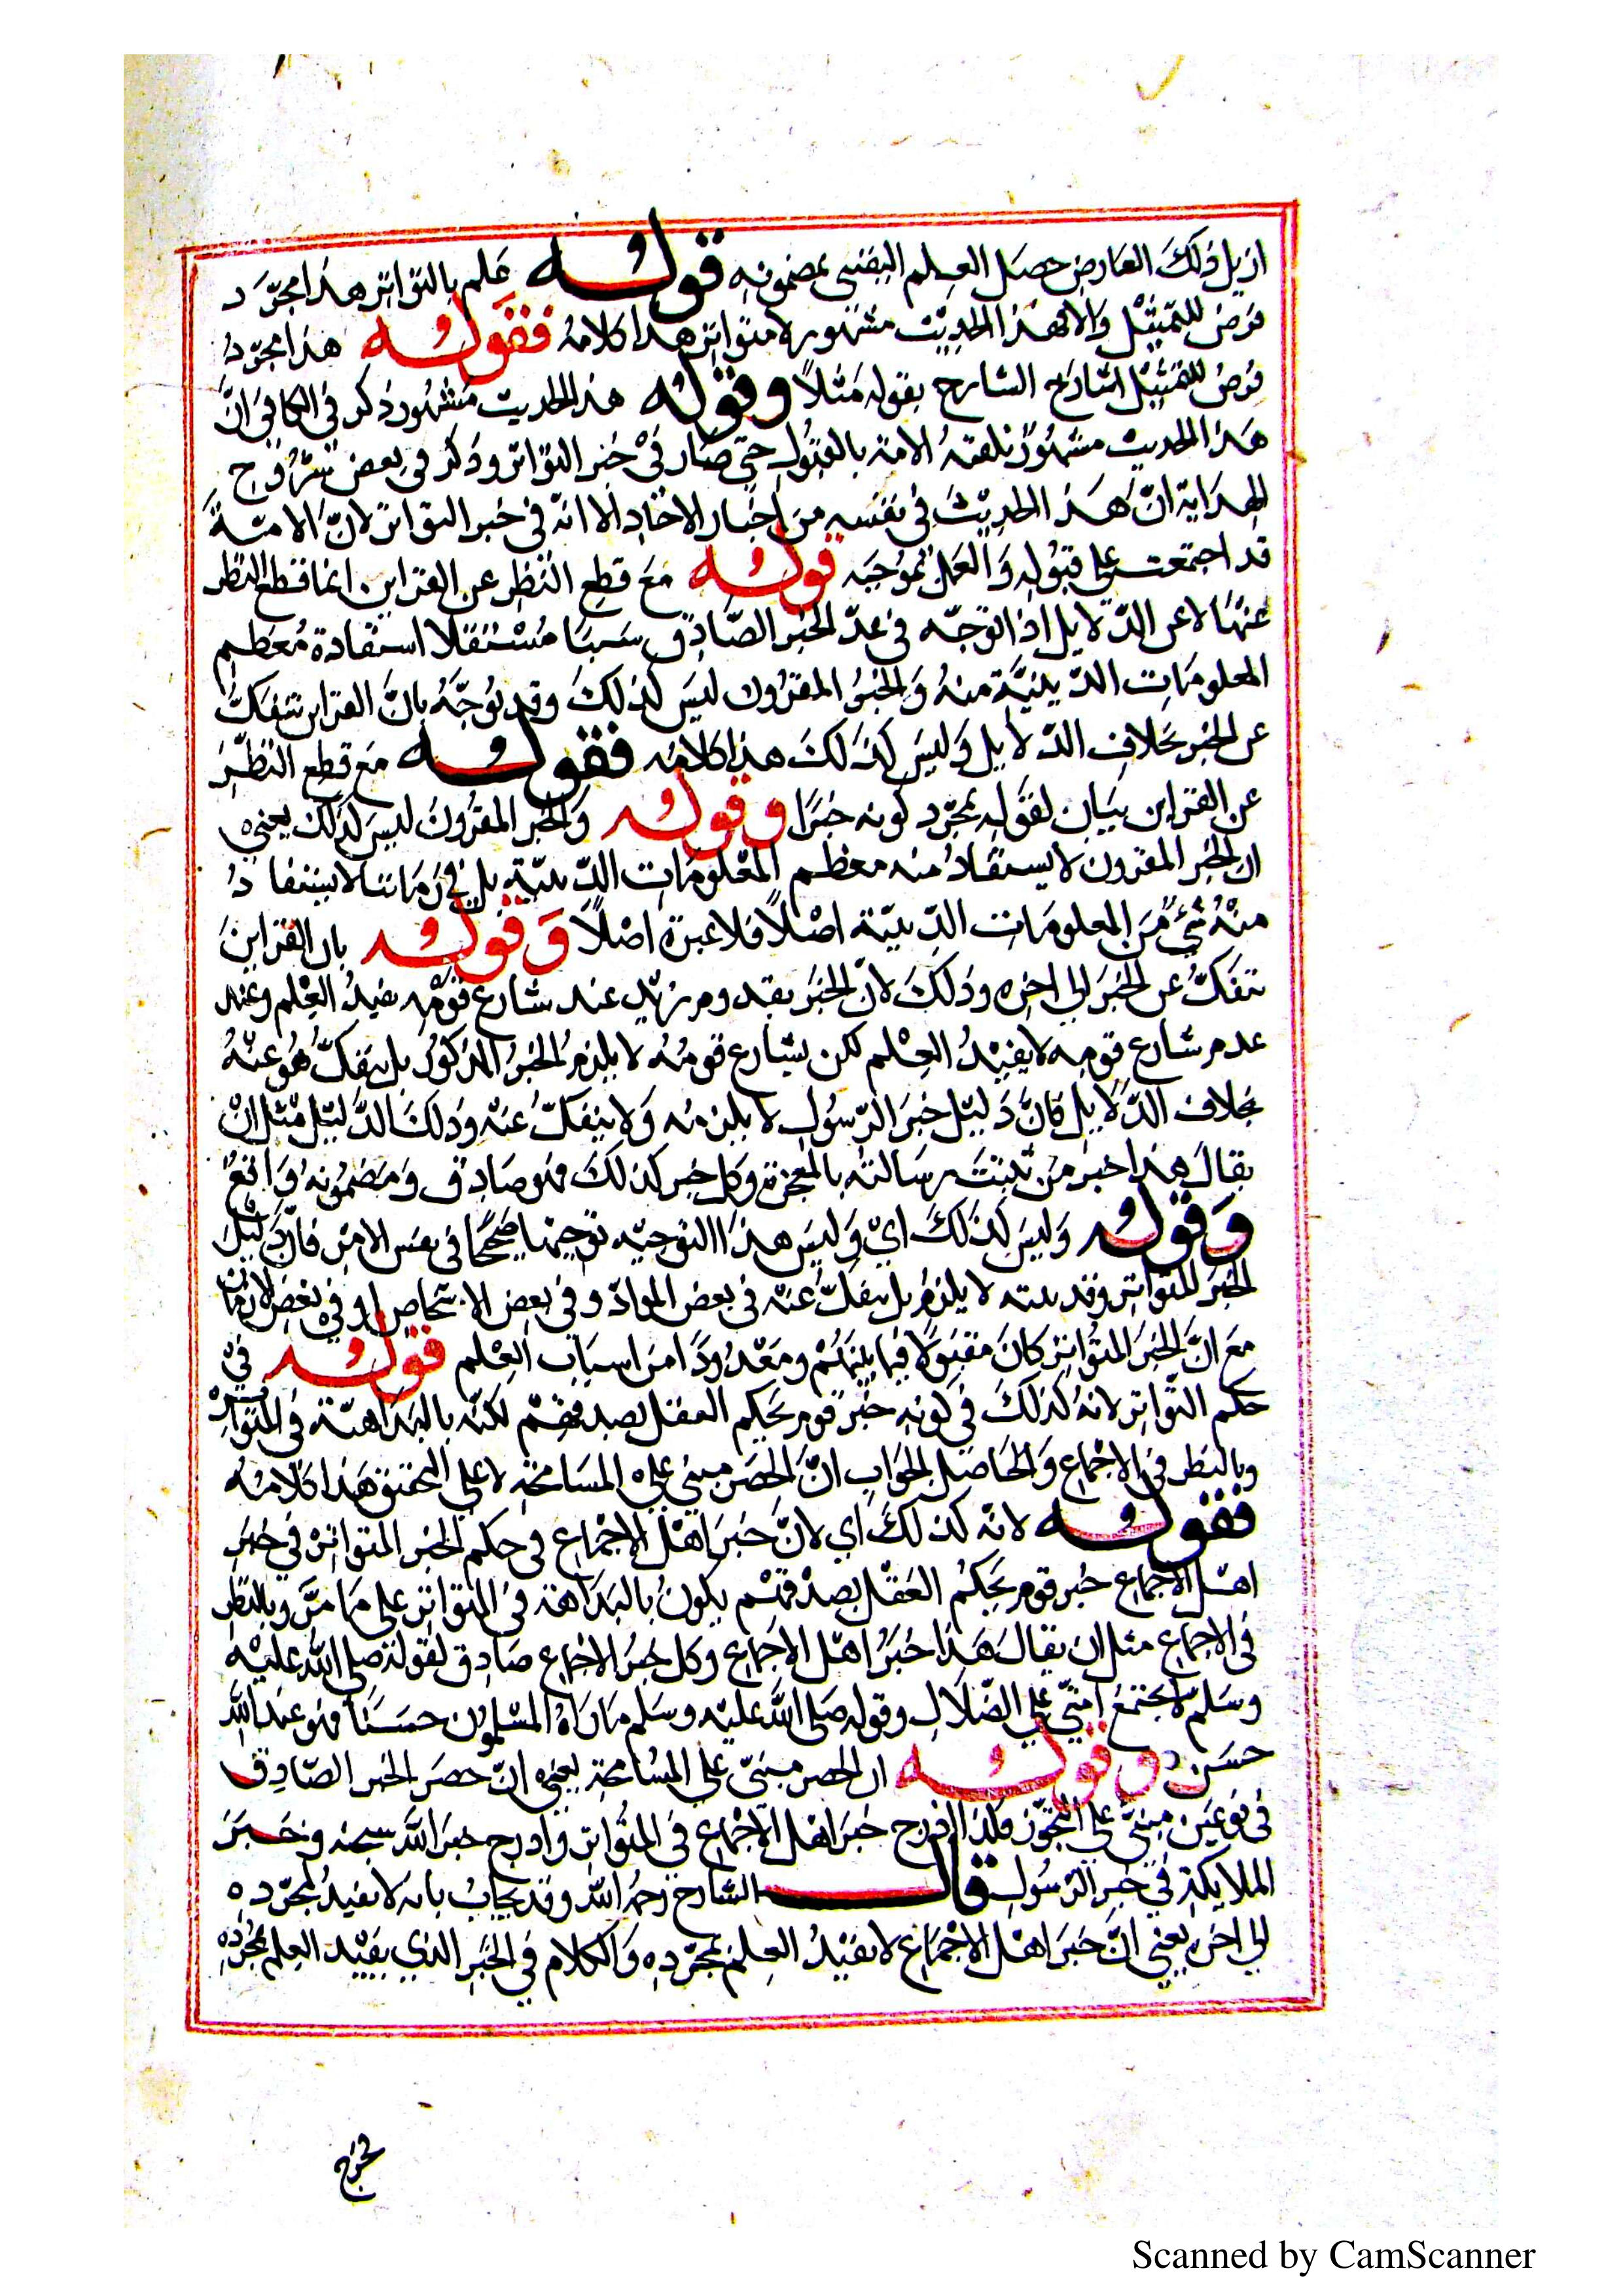 ازيل ذلك العارض حصل العلم اليقيني بمضمونه قوله علم بالتواتر هذا مجرّد
فرض للتمثيل والا فهذا الحديث مشهور لا متواتر هذا كلامه فقوله هذا مجرّد
فرض للتمثيل اشارح الشارح بقوله مثلاً وقوله هذا الحديث مشهور ذكر في الكافي انّ
هذا الحديث مشهور تلقته الامة بالقبول حتى صار في حيز التواتر وذكر في بعض شروح
الهداية انّ هذا الحديث في نفسه من اخبار الآحاد الا انّه في خبر التواتر لانّ الامّة
قد اجتمعت على قبوله والعمل بموجبه قوله مع قطع النظر عن القراين انما قطع النظر
عنها لا عن الدّلايل اذ التوجّه في عدّ الخبر الصّادق سببا مستقلا استفادة معظم
المعلومات الدّينيّة منه والخبر المقرون ليس كذلك وقد يوجّه بانّ القراين تنفكّ
عن الخبر بخلاف الدّلايل وليس كذلك هذا كلامه فقوله مع قطع النظر
عن القراين بيان لقوله بمجرّد كونه خبرًا وقوله والخبر المقرون ليس كذلك يعني
ان الخبر المقرون لا يستفاد منه معظم المعلومات الدّينيّة بل في زماننا لا يستفاد
منه شيء من المعلومات الدّينيّة اصلاً فلا عبرة اصلاً وقوله بان القراين
تنفكّ عن الخبر الى اخره وذلك لانّ الخبر بقدوم زيد عند تسارع قومه يفيد العلم وعند
عدم تسارع قومه لا يفيد العلم لكن تسارع قومه لا يلزم الخبر المذكور بل ينفكّ هو عنه
بخلاف الدّلايل فانّ دليل خبر الرّسول لا يلزمه ولا ينفكّ عنه وذلك الدّليل مثل ان
يقال هذا خبر من تثبت رسالته بالمعجزة وكل خبر كذلك فهو صادق ومضمونه واقع
وقوله وليس كذلك اي وليس هذا التوجيه توجيها صحيحًا في نفس الامر فانّ دليل
الخبر المتواتر وقد لا يلزم بل ينفكّ عنه في بعض الموادّ وفي بعض الاشخاص او في بعض الازمان
مع انّ الخبر المتواتر كان مقبولاً فيما بينهم ومعدودًا من اسباب العلم قوله في
حكم التّواتر لانه كذلك في كونه خبر قوم يحكم العقل بصدقهم لكنّه بالبداهة في المتواتر
وبالنظر في الاجماع والحاصل الجواب انّ الحصر مبني على المسامحة لا على التحقيق هذا كلامه
فقوله لانّه كذلك اي لانّ خبر اهل الاجماع في حكم الخبر المتواتر في خبر
اهل الاجماع خبر قوم يحكم العقل بصدقهم يكون بالبداهة في المتواتر على ما مرّ وبالنظر
في الاجماع مثل ان يقال هذا خبر اهل الاجماع وكل خبر الاجماع صادق لقوله صلى الله عليه
وسلم لا تجتمع امّتي على الضّلال وقوله صلى الله عليه وسلم ما رآه المسلمون حسنًا فهو عند الله
حسن وقوله ان الحصر مبنيّ على المسامحة يعني انّ حصر الخبر الصّادق
في نوعين مبنيّ على التجوّز فلذا ادرج خبر اهل الاجماع في المتواتر وادرج خبر الله سبحنه وخبر
الملايكة في خبر الرّسول قال الشارح رحمه الله وقد يجاب بانه لا يفيد بمجرّده
الى اخره يعني انّ خبر اهل الاجماع لا يفيد العلم بمجرّده والكلام في الخبر الذي يفيد العلم بمجرّده
Scanned by CamScanner